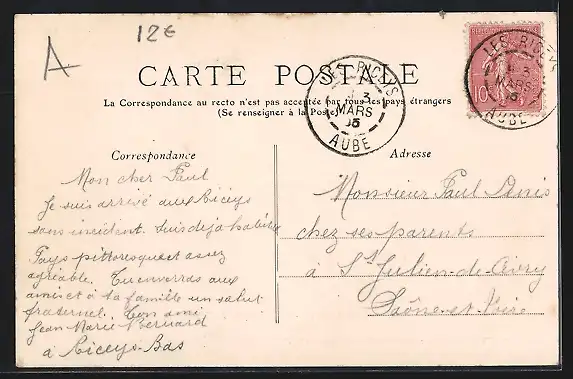 A
12€
CARTE POSTALE
La Correspondance au recto n'est pas acceptée par tous les pays étrangers
(Se renseigner à la Poste)
LES RICEYS
3
MARS
AUBE
LES RICEYS
3
MARS
AUBE
10
Correspondance
Mon cher Paul
Je suis arrivé aux Riceys
sans incident. Suis deja habitué
Pays pittoresque et assez
agréable. Tu enverras aux
amis et à ta famille un salut
fraternel. Ton ami
Jean Marie Bernard
à Riceys-Bas
Adresse
Monsieur Paul
chez ses parents
à St Julien-de-Civry
Saône-et-Loire